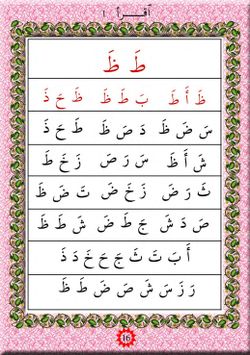 اقرأ ١
طَ ظَ
ظَ أَ طَ بَ طَ ظَ ظَ حَ ذَ
سَ ضَ ظَ دَ صَ ظَ طَ حَ ذَ
شَ أَ ظَ سَ رَ صَ زَ خَ طَ
ثَ رَ ضَ زَ خَ ضَ تَ ضَ ظَ
صَ دَ شَ جَ طَ ضَ شَ طَ ظَ
أَ بَ تَ ثَ جَ حَ خَ دَ ذَ
رَ زَ سَ شَ صَ ضَ طَ ظَ
16